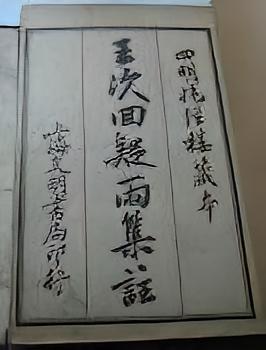 四明樓藏本
王次回疑雨集註
上海文明書局印行